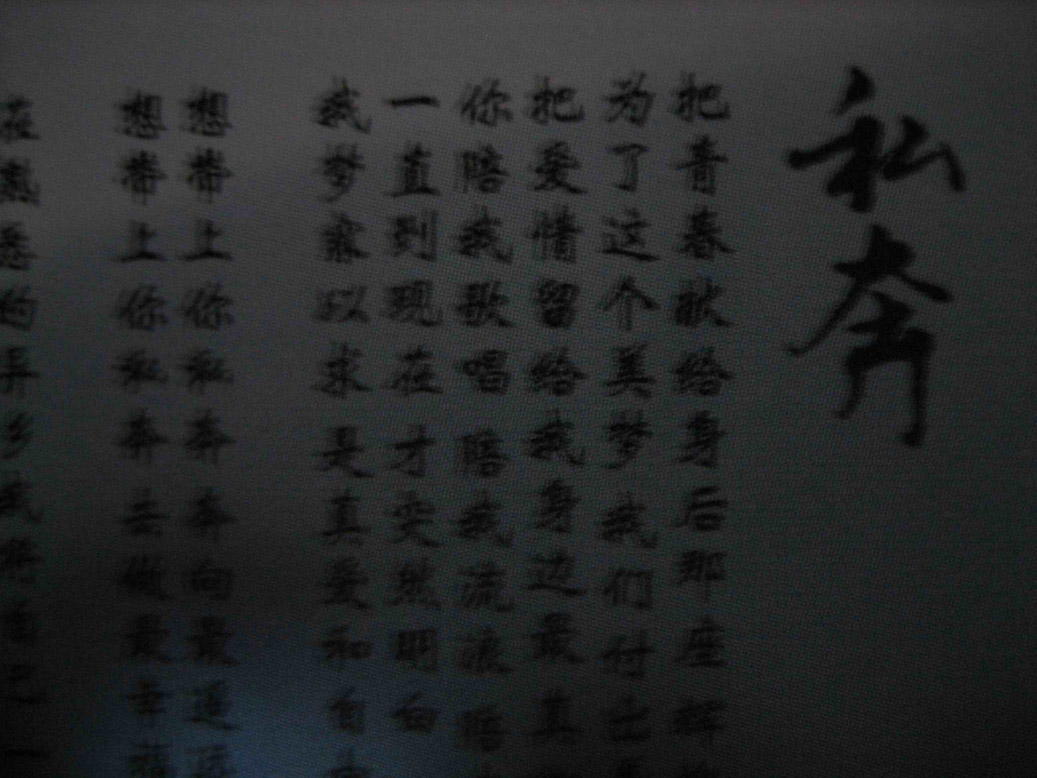 私奔
把青春献给身后那座辉
为了这个美梦我们付出
把爱情留给我身边最真
你陪我歌唱陪我流浪陪
一直到现在才突然明白
我梦寐以求是真爱和自
想带上你私奔奔向最遥远
想带上你私奔去做最幸福
在熟悉的异乡我将自己一